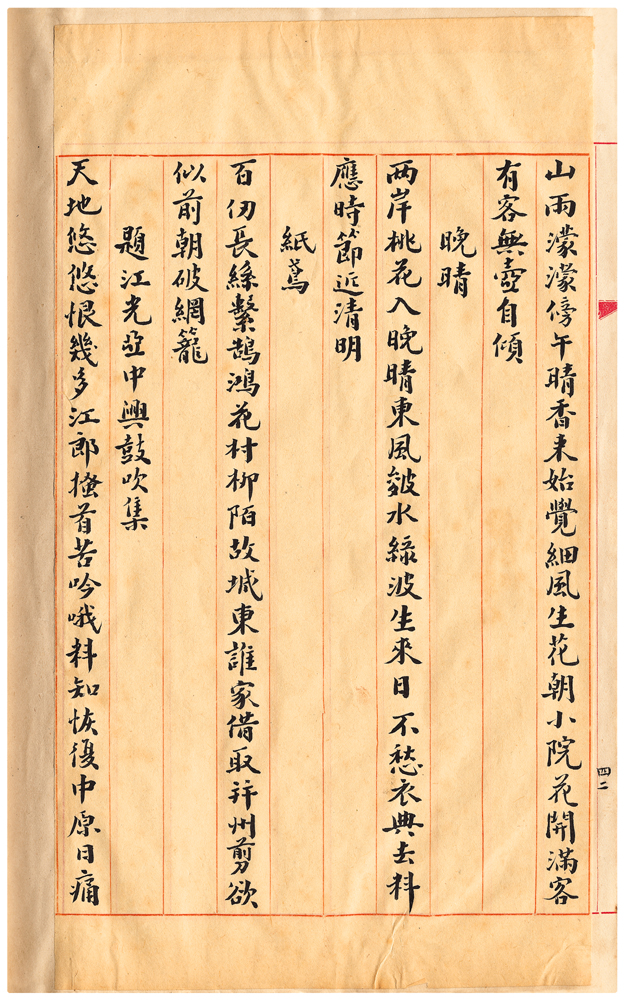 山雨濛濛傍午晴香来始覺細風生花朝小院花開滿客
有客無壺自傾
晚晴
兩岸桃花入晚晴東風皴水綠波生來日不愁衣典去料
應時節近清明
紙鳶
百仞長絲繫鵠鴻花村柳陌故城東誰家借取并州剪欲
似前朝破網籠
題江光亞中興鼓吹集
天地悠悠恨幾多江郎搔首苦吟哦料知恢復中原日痛
四二